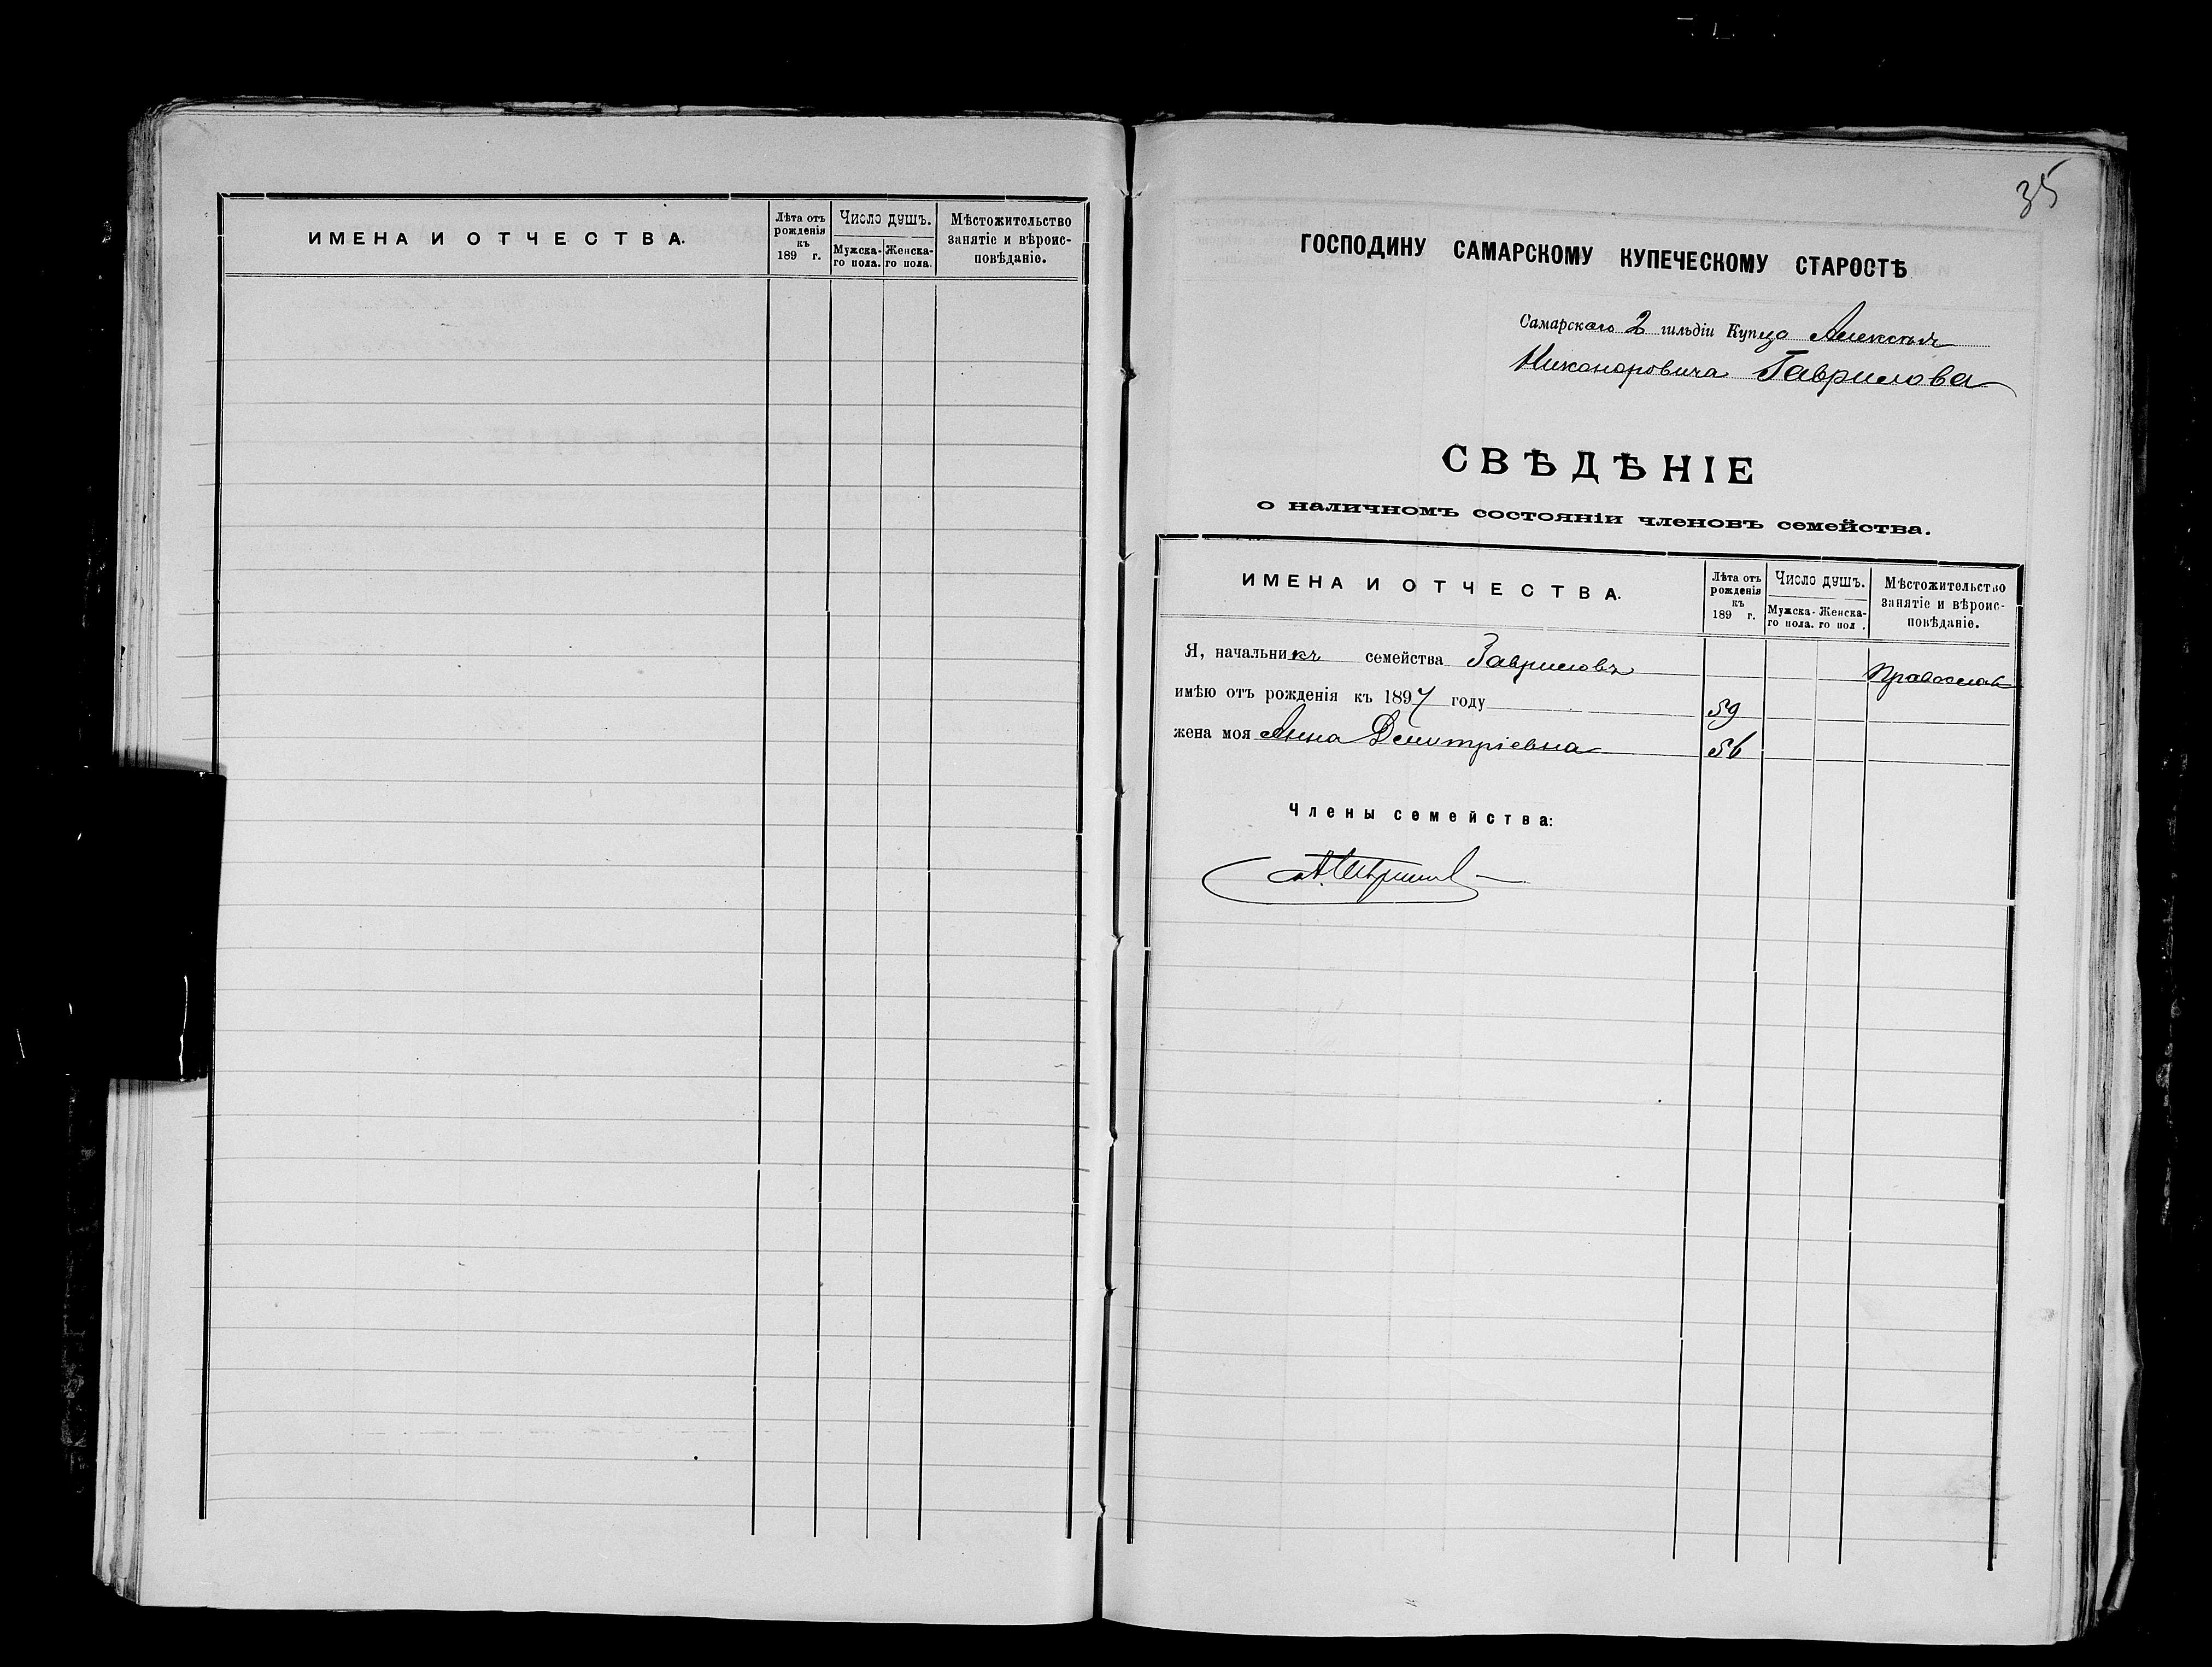 ИМЕНА И ОТЧЕСТВА.
Лѣта отъ рожденія къ 189 г.
Число душъ.
Мужска-го пола.
Женска-го пола.
Мѣстожительство занятіе и вѣроис-повѣданіе.
35
ГОСПОДИНУ САМАРСКОМУ КУПЕЧЕСКОМУ СТАРОСТѢ
Самарскаго 2 гильдіи Купца
Никаноровича Гаврилова
СВѢДѢНІЕ
о наличномъ состояніи членовъ семейства.
ИМЕНА И ОТЧЕСТВА.
Лѣта отъ рожденія къ 189 г.
Число душъ.
Мужска-го пола.
Женска-го пол .
Мѣстожительство занятіе и вѣроис-повѣданіе.
Я, начальникъ семейства Гавриловъ Православ
имѣю отъ рожденія къ 1897 году 59
жена моя Анна Дмитріевна 56
Члены семейства: